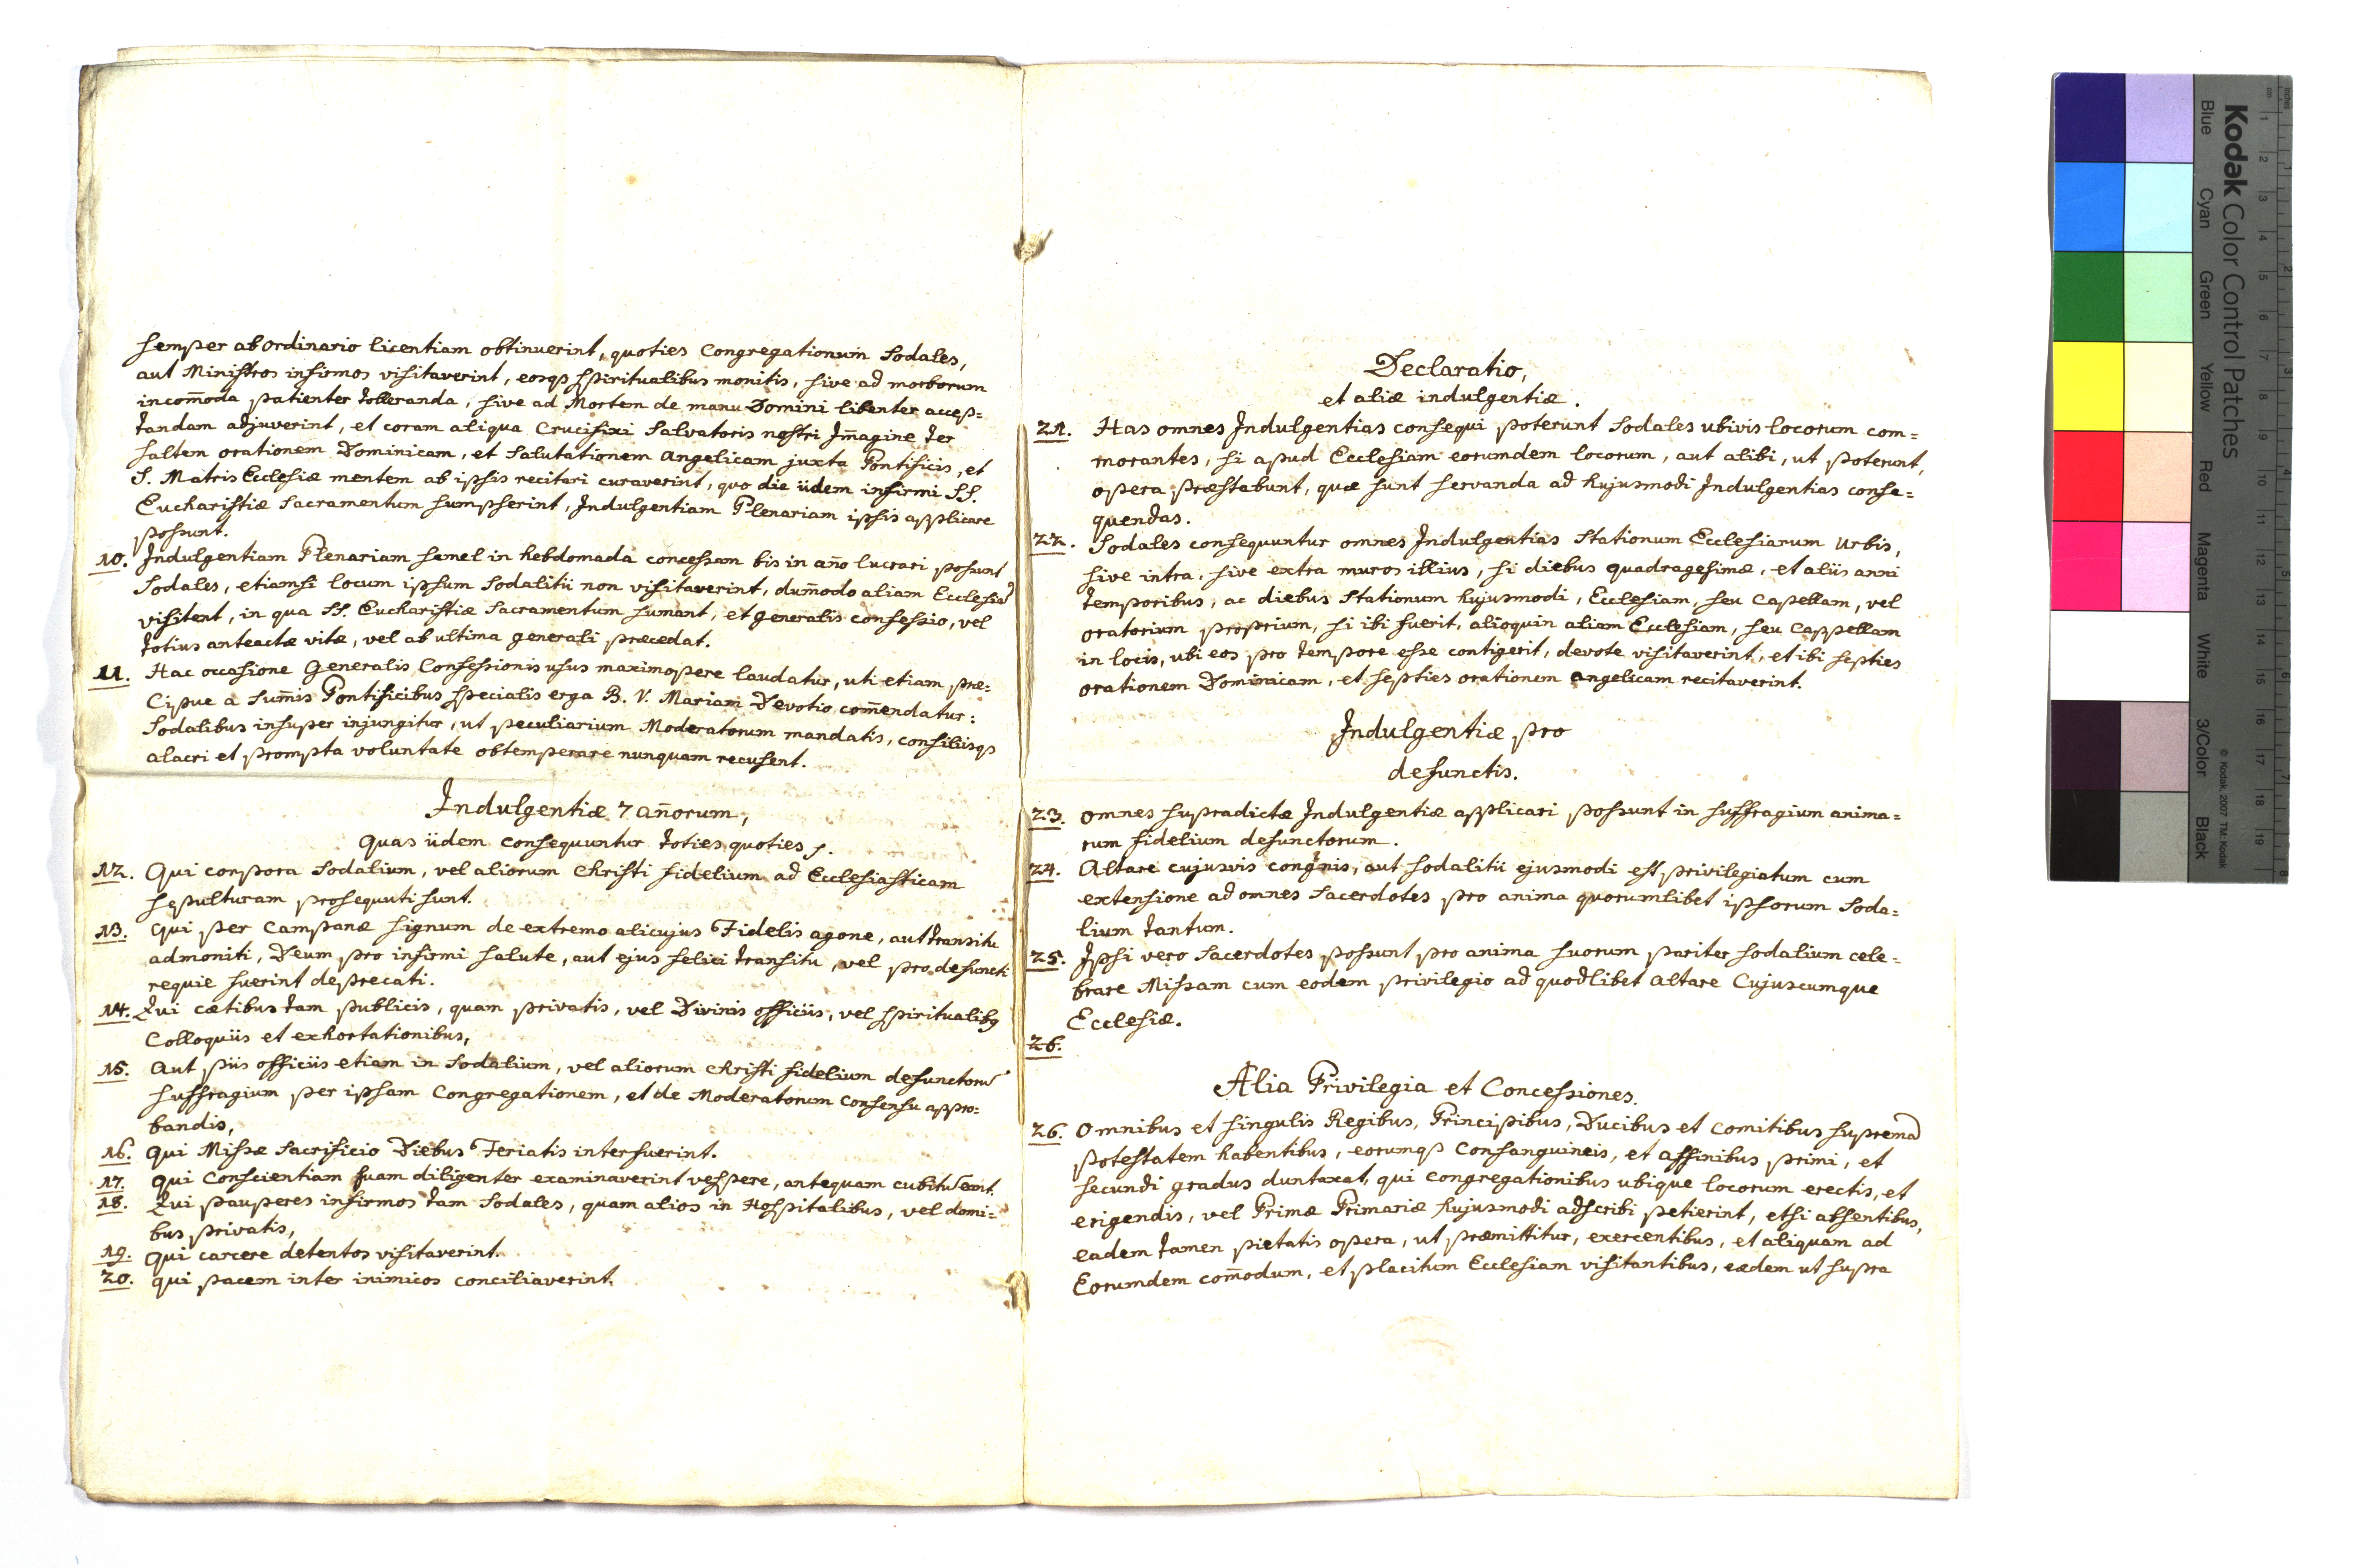 semper ab ordinario licentiam obtinuerint, quoties Congregationum Sodales,
aut Ministros infirmos visitaverint, eosqꝫ spiritualibus monitis, sive ad morborum
incom̄oda patienter tolleranda, sive ad Mortem de manu Domini libenter accep=
tandam adjuverint, et coram aliqua Crucifixi Salvatoris nostri Im̄agine ter
saltem orationem Dominicam, et Salutationem angelicam juxta Pontificis, et
S. Matris Ecclesiæ mentem ab ipsis recitari curaverint, quo die iidem infirmi SS.
Eucharistiæ Sacramentum sumpserint, Indulgentiam Plenariam ipsis applicare
possunt.
10. Indulgentiam Plenariam semel in hebdomada concessam bis in an̄o lucrari possunt
Sodales, etiamsi locum ipsum Sodalitii non visitaverint, dum̄odo aliam Ecclesiā
visitent, in qua SS. Eucharistiæ Sacramentum sumant, et generalis confessio, vel
totius anteactæ vitæ, vel ab ultima generali præcedat.
11. Hac occasione Generalis Confessionis usus maximopere laudatur, uti etiam præ=
Cipue a Sum̄is Pontificibus specialis erga B. V. Mariam Devotio com̄endatur:
Sodalibus insuper injungitur, ut peculiarium Moderatorum mandatis, consiliisqꝫ
alacri et prompta voluntate obtemperare nunquam recusent.
Indulgentiæ 7 an̄orum,
Quas iidem consequuntur toties quoties.
12. Qui corpora Sodalium, vel aliorum Christi fidelium ad Ecclesiasticam
sepulturam prosequuti sunt.
13. Qui per Campanæ signum de extremo alicujus Fidelis agone, aut transitu
admoniti, Deum pro infirmi salute, aut ejus felici transitu, vel pro defuncti
requie fuerint deprecati.
14. Qui cætibus tam publicis, quam privatis, vel Divinis officiis, vel spiritualibꝰ
Colloquiis et exhortationibus,
15. Aut piis officiis etiam in Sodalium, vel aliorum Christi fidelium defunctorū
suffragium per ipsam Congregationem, et de Moderatorum Consensu appro=
bandis,
16. Qui Missæ Sacrificio Diebus Feriatis interfuerint.
17. Qui Conscientiam suam diligenter examinaverint vespere, antequam cubitū eant.
18. Qui pauperes infirmos tam Sodales, quam alios in Hospitalibus, vel domi=
bus privatis,
19. Qui carcere detentos visitaverint.
20. qui pacem inter inimicos conciliaverint.
Declaratio,
et aliæ indulgentiæ.
21. Has omnes Indulgentias consequi poterunt Sodales ubivis locorum com=
morantes, si apud Ecclesiam eorumdem locorum, aut alibi, ut poterunt,
opera præstabunt, quæ sunt servanda ad hujusmodi Indulgentias conse=
quendas.
22. Sodales consequuntur omnes Indulgentias Stationum Ecclesiarum Urbis,
sive intra, sive extra muros illius, si diebus quadragesimæ, et aliis anni
temporibus, ac diebus Stationum hujusmodi, Ecclesiam, seu Capellam, vel
oratorium proprium, si ibi fuerit, alioquin aliam Ecclesiam, seu Cappellam
in locis, ubi eos pro tempore esse contigerit, devote visitaverint, et ibi septies
orationem Dominicam, et septies orationem angelicam recitaverint.
Indulgentiæ pro
defunctis.
23. omnes supradictæ Indulgentiæ applicari possunt in suffragium anima=
rum fidelium defunctorum.
24. Altare cujusvis congnis, aut Sodalitii ejusmodi est privilegiatum cum
extensione ad omnes Sacerdotes pro anima quorumlibet ipsorum Soda=
lium tantum.
25. Ipsi vero Sacerdotes possunt pro anima suorum pariter Sodalium cele=
brare Missam cum eodem privilegio ad quodlibet altare Cujuscumque
Ecclesiæ.
26.
Alia Privilegia et Concessiones.
26. Omnibus et singulis Regibus, Principibus, Ducibus et Comitibus supremā
potestatem habentibus, eorumqꝫ Consanguineis, et affinibus primi, et
secundi gradus duntaxat, qui congregationibus ubique locorum erectis, et
erigendis, vel Primæ Primariæ hujusmodi adscribi petierint, etsi absentibus,
eadem tamen pietatis opera, ut præmittitur, exercentibus, et aliquam ad
Eorumdem com̄odum, et placitum Ecclesiam visitantibus, eædem ut supra
Kodak Color Control Patches
© Kodak, 2007 TM: Kodak
Blue Cyan Green Yellow Red Magenta White 3/Color Black
inches 1 2 3 4 5 6 7 8
cm 1 2 3 4 5 6 7 8 9 10 11 12 13 14 15 16 17 18 19